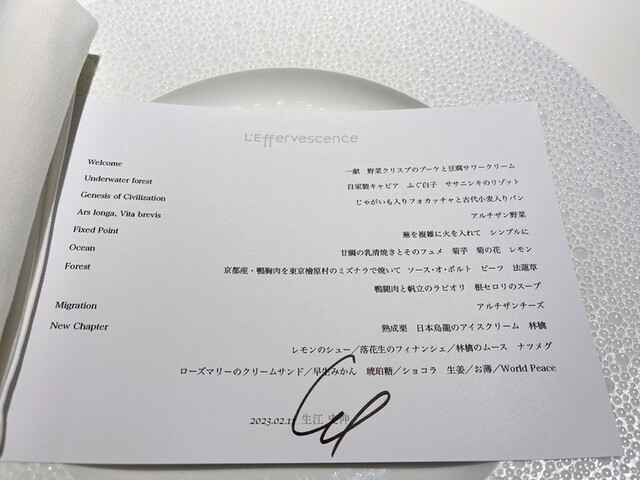 L'Effervescence
Welcome 一献 野菜クリスプのブーケと豆腐サワークリーム
Underwater forest 自家製キャビア ふぐ白子 ササニシキのリゾット
Genesis of Civilization じゃがいも入りフォカッチャと古代小麦入りパン
Ars longa, Vita brevis アルチザン野菜
Fixed Point 蕪を複雑に火を入れて シンプルに
Ocean 甘鯛の乳清焼きとそのフュメ 菊芋 菊の花 レモン
Forest 京都産・鴨胸肉を東京檜原村のミズナラで焼いて ソース・オ・ポルト ビーツ 法蓮草
鴨腿肉と帆立のラビオリ 根セロリのスープ
Migration アルチザンチーズ
New Chapter 熟成栗 日本烏龍のアイスクリーム 林檎
レモンのシュー/落花生のフィナンシェ/林檎のムース ナツメグ
ローズマリーのクリームサンド/早生みかん 琥珀糖/ショコラ 生姜/お薄/World Peace
2023.02. 生江